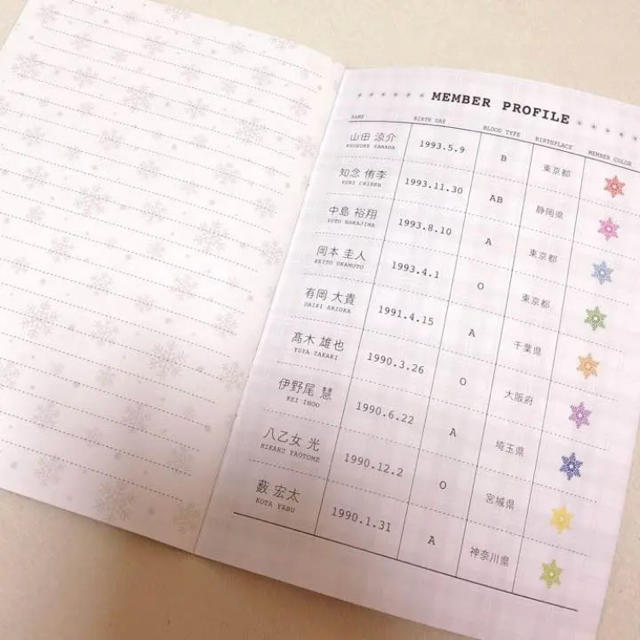 MEMBER PROFILE
NAME BIRTH DAY BLOOD TYPE BIRTHPLACE MEMBER COLOR
山田 涼介 1993.5.9 B 東京都
RYOSUKE YAMADA
知念 侑李 1993.11.30 AB 静岡県
YURI CHINEN
中島 裕翔 1993.8.10 A 東京都
YUTO NAKAJIMA
岡本 圭人 1993.4.1 O 東京都
KEITO OKAMOTO
有岡 大貴 1991.4.15 A 千葉県
DAIKI ARIOKA
髙木 雄也 1990.3.26 O 大阪府
YUYA TAKAKI
伊野尾 慧 1990.6.22 A 埼玉県
KEI INOO
八乙女 光 1990.12.2 O 宮城県
HIKARU YAOTOME
薮 宏太 1990.1.31 A 神奈川県
KOTA YABU